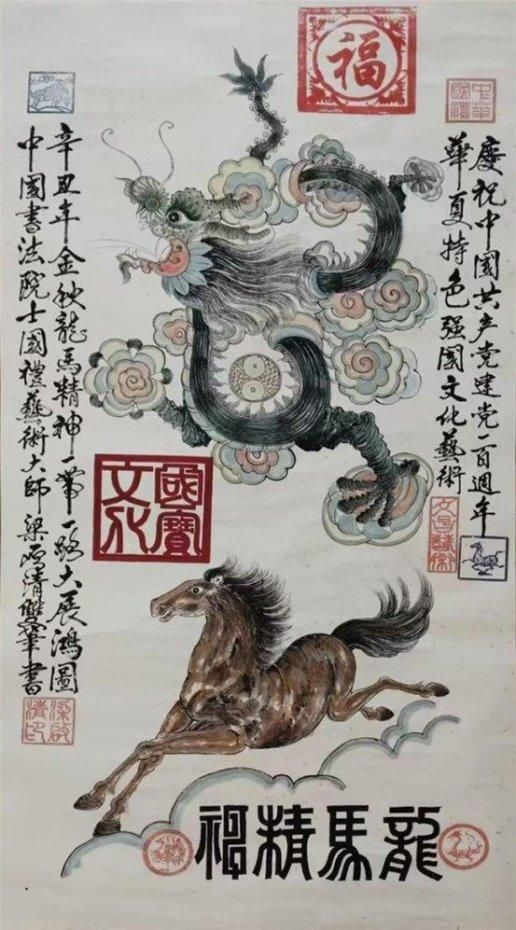 福
中華國禮
慶祝中國共产党建党一百週年
華夏特色强國文化藝術
國寶
文化
辛丑年金秋龍馬精神一帶一路大展鴻圖
中國書法院士國禮藝術大師梁啟清雙筆書
梁啟清印
龍馬精神